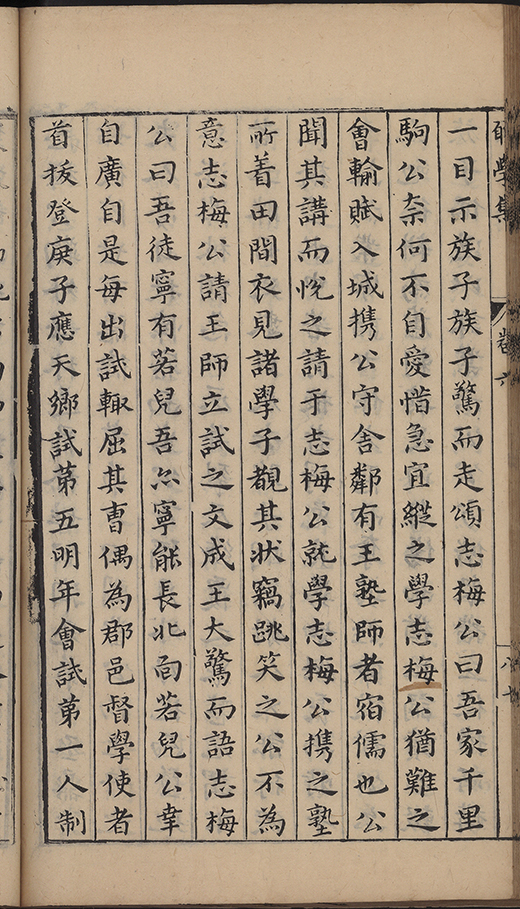 學集 卷六 八十
一目示族子族子驚而走頌志梅公曰吾家千里
駒公柰何不自愛惜急宜縱之學志梅公猶難之
會輸賦入城携公守舍鄰有王塾師者宿儒也公
聞其講而悅之請于志梅公就學志梅公携之塾
所着田間衣見諸學子覩其狀竊跳笑之公不為
意志梅公請王師立試之文成王大驚而語志梅
公曰吾徒寧有若兒吾尔寧能長北面若兒公幸
自廣自是每出試輙屈其曹偶為郡邑督學使者
首拔登庚子應天鄉試第五明年會試第一人制